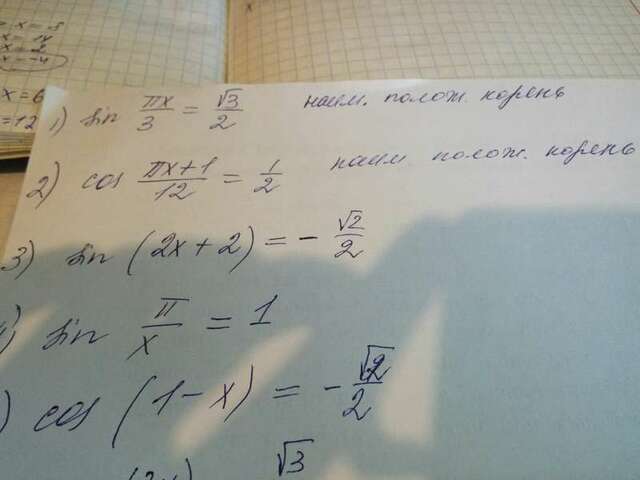 x = 14
x = 2
x = -4
x = 6
= 12
1) sin πx/3 = √3/2 наим. полож. корень
2) cos πx+1/12 = 1/2 наим полож. корень
3) sin (2x + 2) = - √2/2
) sin π/x = 1
) cos (1 - x) = - √2/2
√3